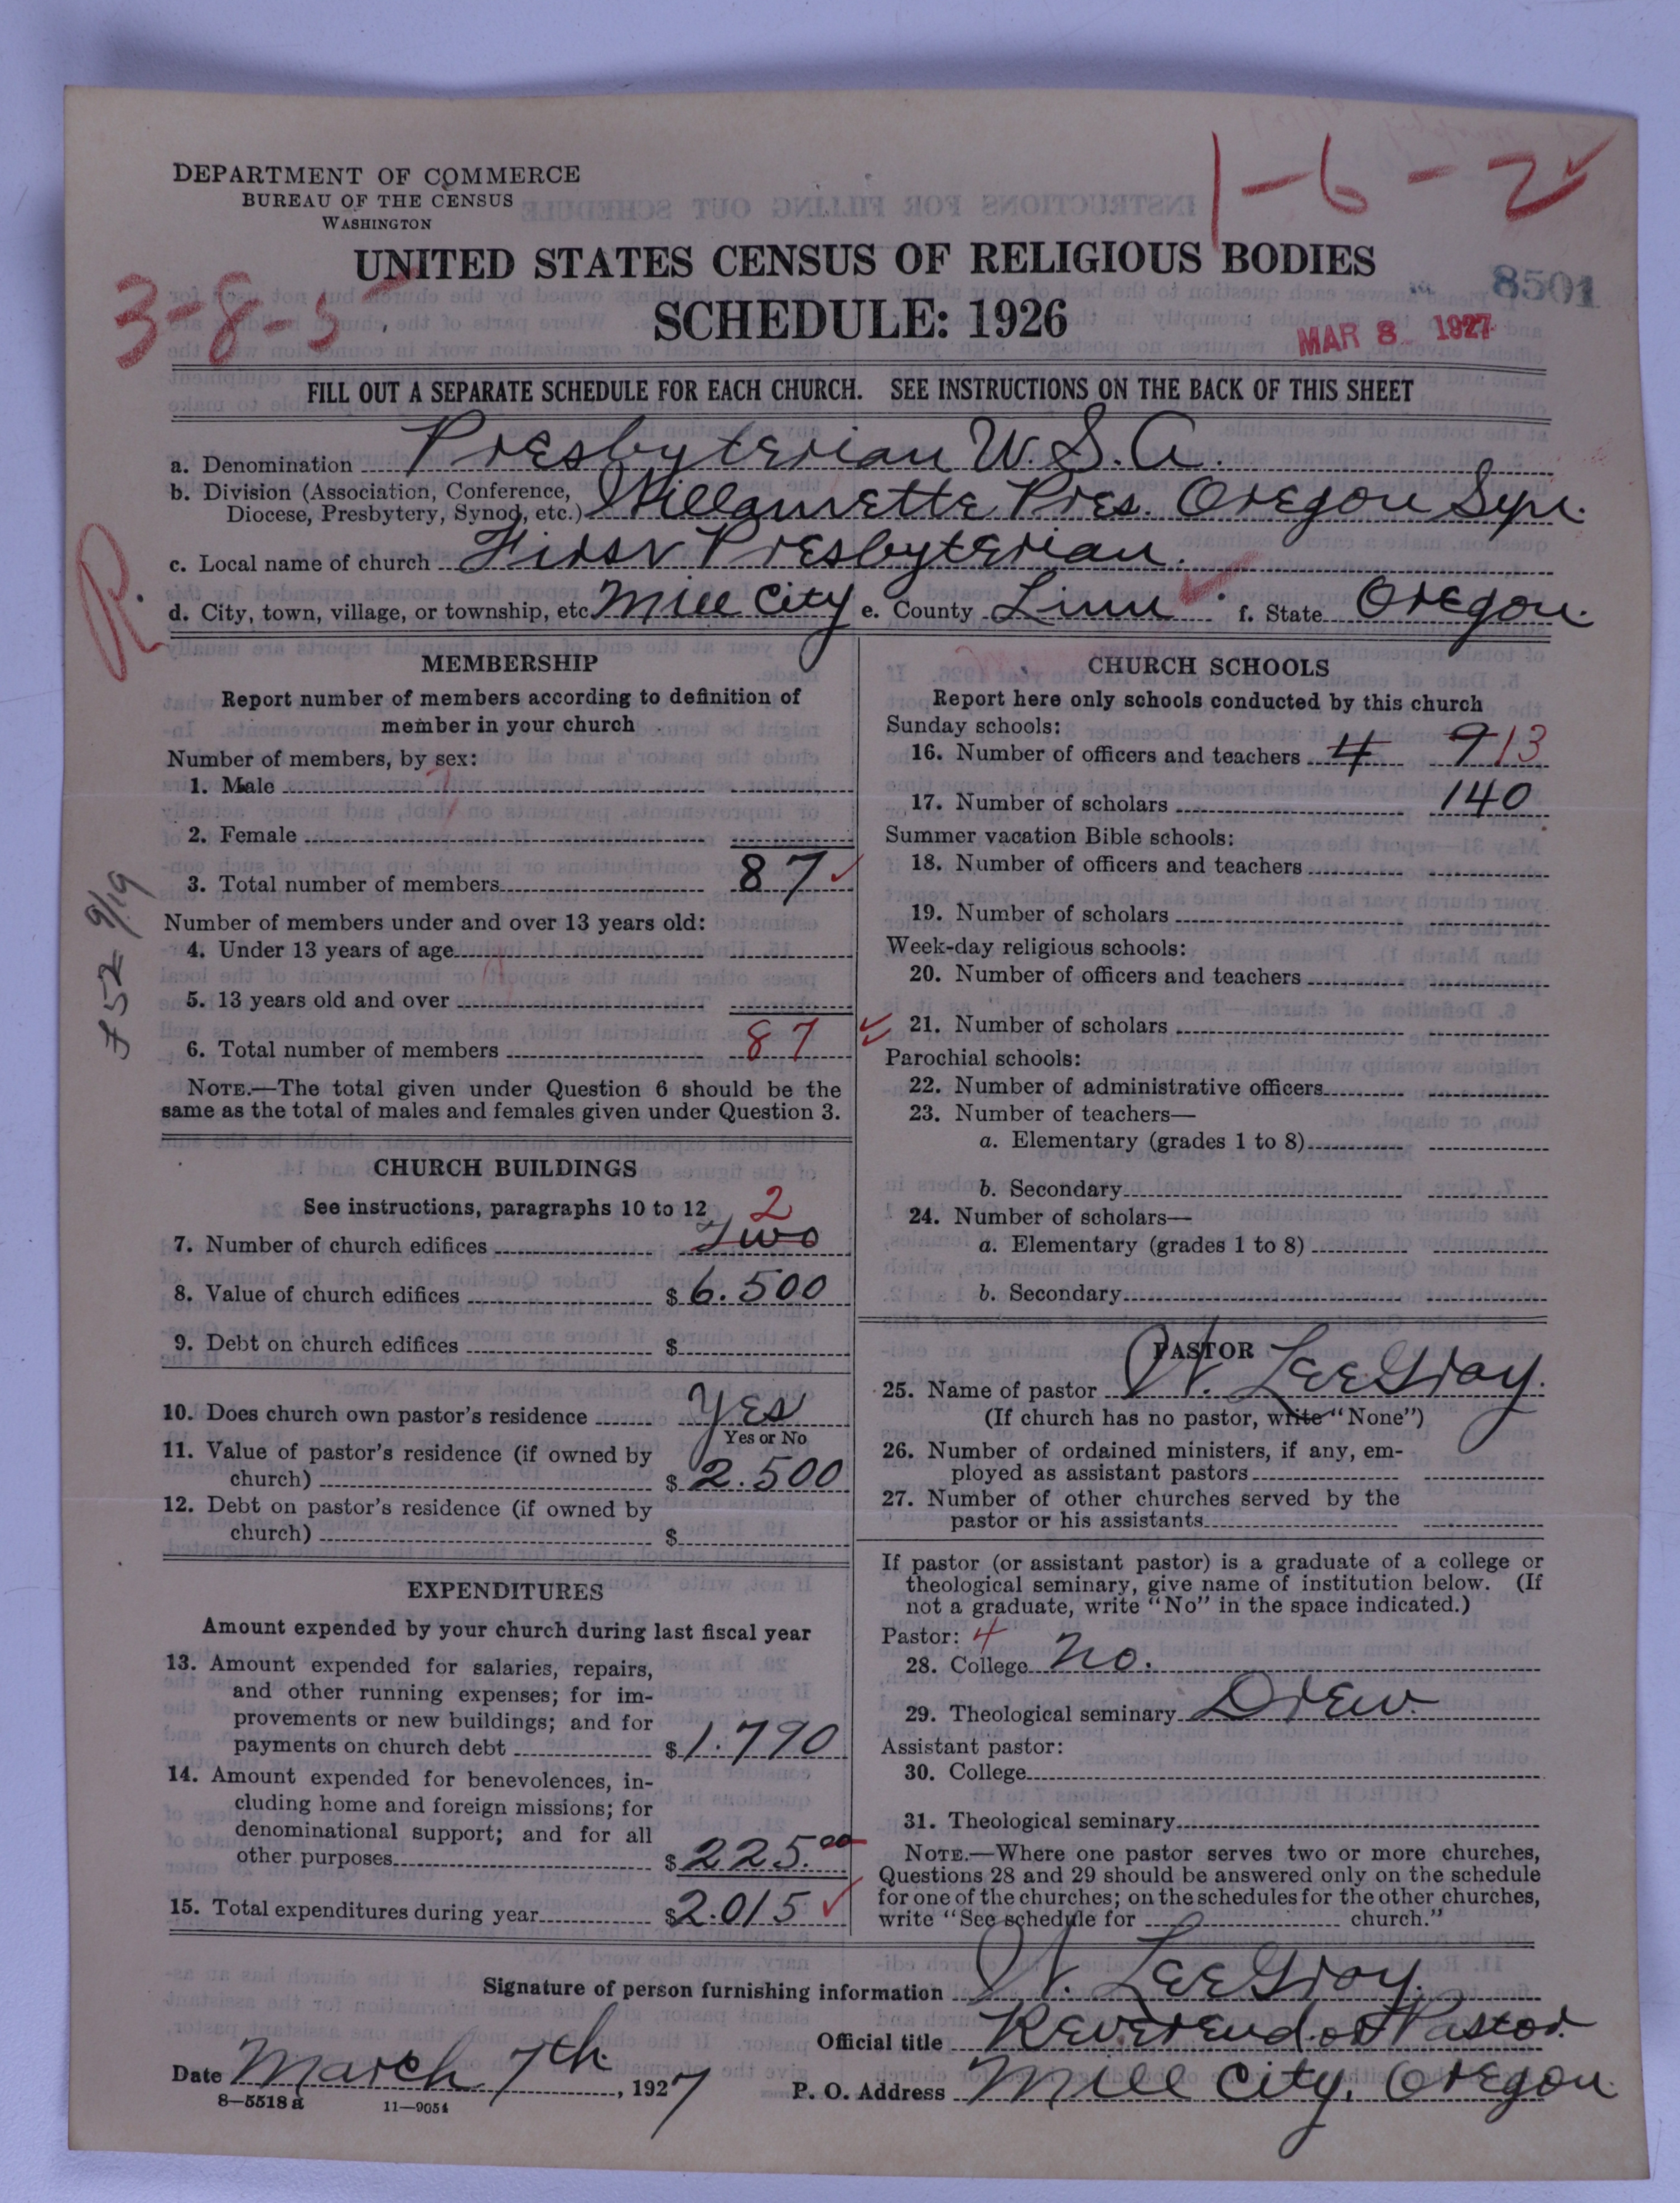 1-6-2
DEPARTMENT OF COMMERCE
BUREAU OF THE CENSUS
WASHINGTON
UNITED STATES CENSUS OF RELIGIOUS BODIES
8501
3-8-5
SCHEDULE: 1926
MAR 8 1927
FILL OUT A SEPARATE SCHEDULE FOR EACH CHURCH. SEE INSTRUCTIONS ON THE BACK OF THIS SHEET
a. Denomination Presbyterian U.S.A.
b. Division (Association, Conference, Diocese, Presbytery, Synod, etc.) Willamette Pres. Oregon Syn.
c. Local name of church First Presbyterian.
R.
d. City, town, village, or township, etc. Mill City e. County Linn f. State Oregon.
MEMBERSHIP
Report number of members according to definition of
member in your church
Number of members, by sex:
1. Male
2. Female
3. Total number of members 87
9/19
Number of members under and over 13 years old:
4. Under 13 years of age
5. 13 years old and over
6. Total number of members 87
NOTE.—The total given under Question 6 should be the
same as the total of males and females given under Question 3.
CHURCH BUILDINGS
See instructions, paragraphs 10 to 12
2
7. Number of church edifices Two
8. Value of church edifices $ 6.500
9. Debt on church edifices $
10. Does church own pastor's residence Yes
Yes or No
11. Value of pastor's residence (if owned by
church) $ 2.500
12. Debt on pastor's residence (if owned by
church) $
EXPENDITURES
Amount expended by your church during last fiscal year
13. Amount expended for salaries, repairs,
and other running expenses; for im-
provements or new buildings; and for
payments on church debt $ 1.790
14. Amount expended for benevolences, in-
cluding home and foreign missions; for
denominational support; and for all
other purposes $ 225.00
15. Total expenditures during year $ 2.015
CHURCH SCHOOLS
Report here only schools conducted by this church
Sunday schools:
16. Number of officers and teachers 4 9 13
17. Number of scholars 140
Summer vacation Bible schools:
18. Number of officers and teachers
19. Number of scholars
Week-day religious schools:
20. Number of officers and teachers
21. Number of scholars
Parochial schools:
22. Number of administrative officers
23. Number of teachers—
a. Elementary (grades 1 to 8)
b. Secondary
24. Number of scholars—
a. Elementary (grades 1 to 8)
b. Secondary
PASTOR
25. Name of pastor W. Lee Gray.
(If church has no pastor, write "None")
26. Number of ordained ministers, if any, em-
ployed as assistant pastors
27. Number of other churches served by the
pastor or his assistants
If pastor (or assistant pastor) is a graduate of a college or
theological seminary, give name of institution below. (If
not a graduate, write "No" in the space indicated.)
Pastor: 4
28. College No.
29. Theological seminary Drew.
Assistant pastor:
30. College
31. Theological seminary
NOTE.—Where one pastor serves two or more churches,
Questions 28 and 29 should be answered only on the schedule
for one of the churches; on the schedules for the other churches,
write "See schedule for church."
Signature of person furnishing information W. Lee Gray.
Official title Reverend or Pastor.
Date March 7th, 1927
P. O. Address Mill City, Oregon.
8—5518 a 11—9054